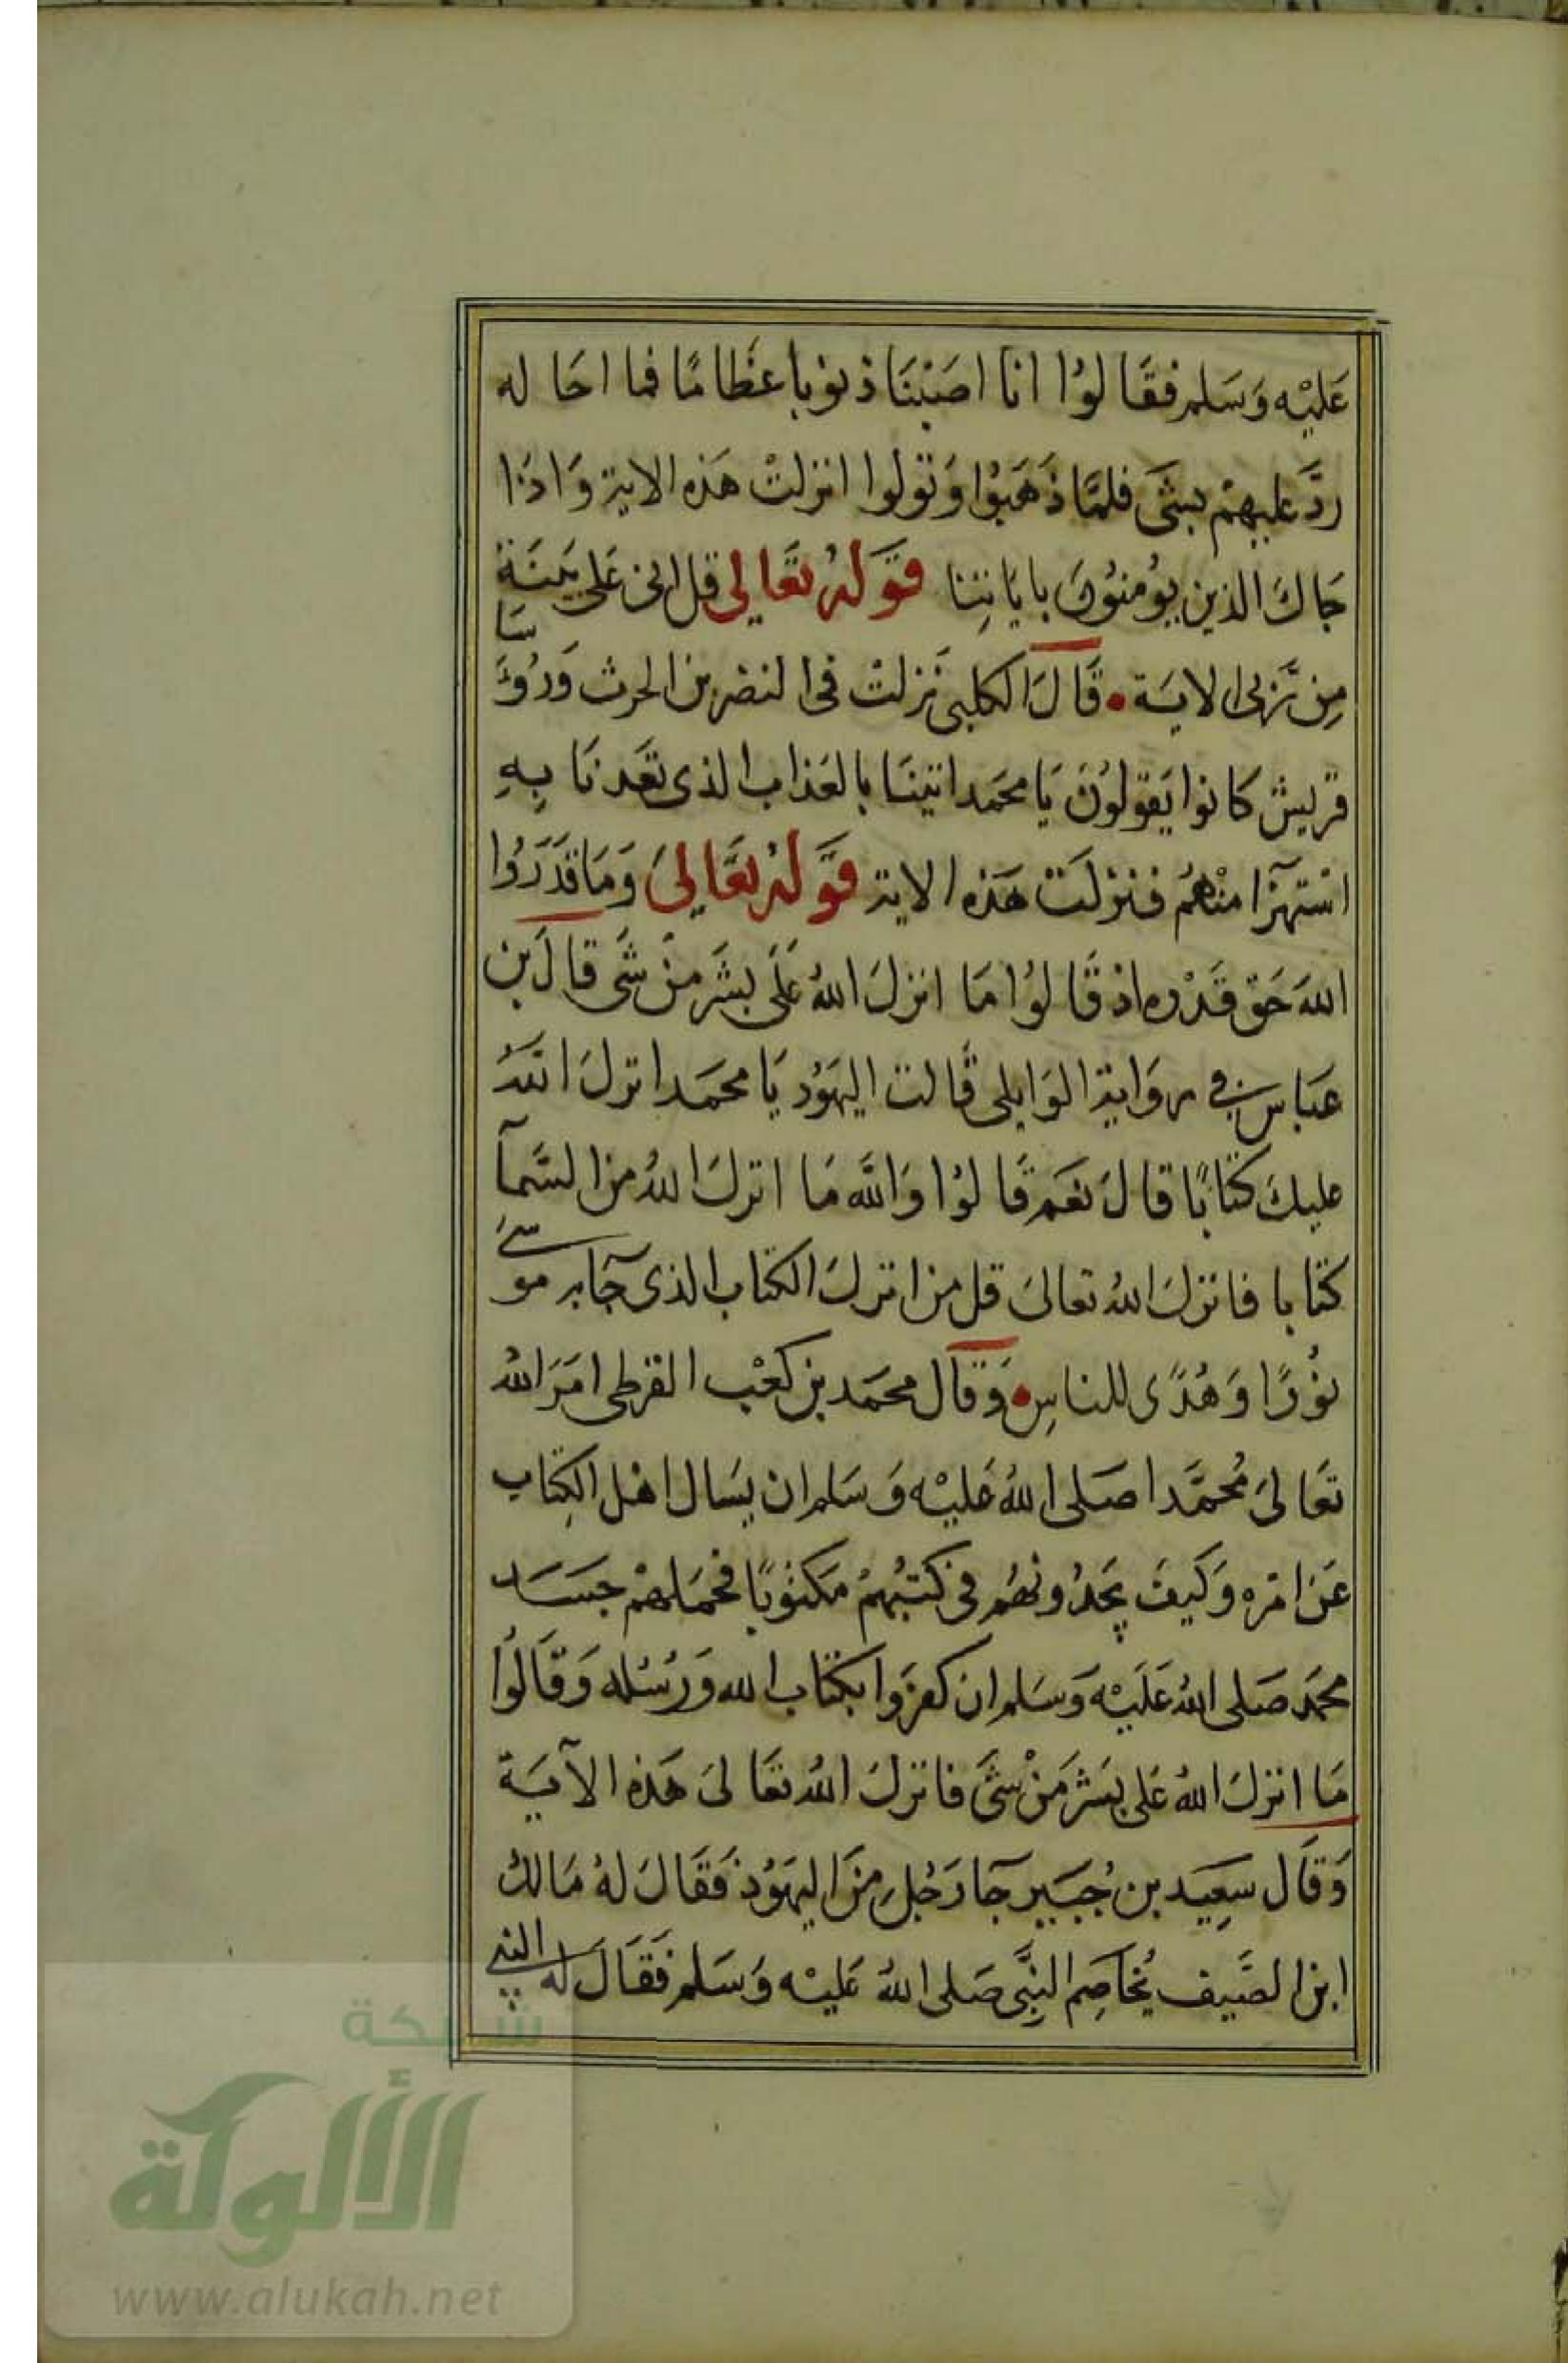 عَليْه وَسَلم فقَالوُا انا اصَبْنَا ذنوبا عظَامًا فما احَاله
ردَّ عليهمْ بشَىَ فلمَّا ذهَبُوا وَتولوا انزلتْ هَذه الاية وَاذا
جَاكَ الذين يؤمنُونَ باياتِنا قوَلهُ تعَالى قل انى عَلى بَيّنَة
مِن رَّبى الايَة • قَالَ الكلبى نَزلتْ فى النضر بن الحرث وَرُؤسَا
قريش كانوا يَقولوُنَ يَا محمَد اتينَا بالعَذاب الذى تعَدنَا بِهِ
اسْتهزآ منْهُم فنزلَتْ هَذه الاية قوَلهُ تعَالىَ وَمَا قدَرُوا
اللهَ حَق قَدْره اذ قَالوُا مَا انزلَ اللهُ عَلَى بشَر منْ شَى قالَ بن
عَباس فى روَاية الوَابلى قَالت اليهَوُد يَا محمَد انزلَ اللهُ
عليكَ كتَابًا قالَ نعَم قَالوُا وَاللَّه مَا انزلَ اللهُ من السَّمآ
كتابا فانزلَ اللهُ تعالىَ قل من انزلَ الكتاب الذى جَآ به موسىَ
نوُرًا وَهُدًى للناسِ • وَقال محمَد بن كعْب القرظى امَرَ اللهُ
تعَالىَ مُحمَّدا صَلى اللهُ عَليْه وَسَلم ان يسَال اهْل الكِتَاب
عَن امْره وَكيفَ يجَدُونهُم فى كتبُهمْ مَكتوُبًا فحمَلهمْ حسَد
محمَد صَلى اللهُ عَلَيْه وَسَلم ان كفرَوا بكتاب الله وَرسُله وَقَالوُا
مَا انزلَ اللهُ عَلى بشَر منْ شَىَ فانزلَ اللهُ تعَالىَ هَذه الآيَة
وَقَال سعِيَد بن جُبَير جَآ رَجُل منَ اليهَوُد فَقَالَ لهُ مَالك
ابن الصَّيف يُخَاصِم النبِىَّ صَلى اللهُ عَليْه وَسَلم فقَالَ له النبى
شبكة
الألوكة
www.alukah.net